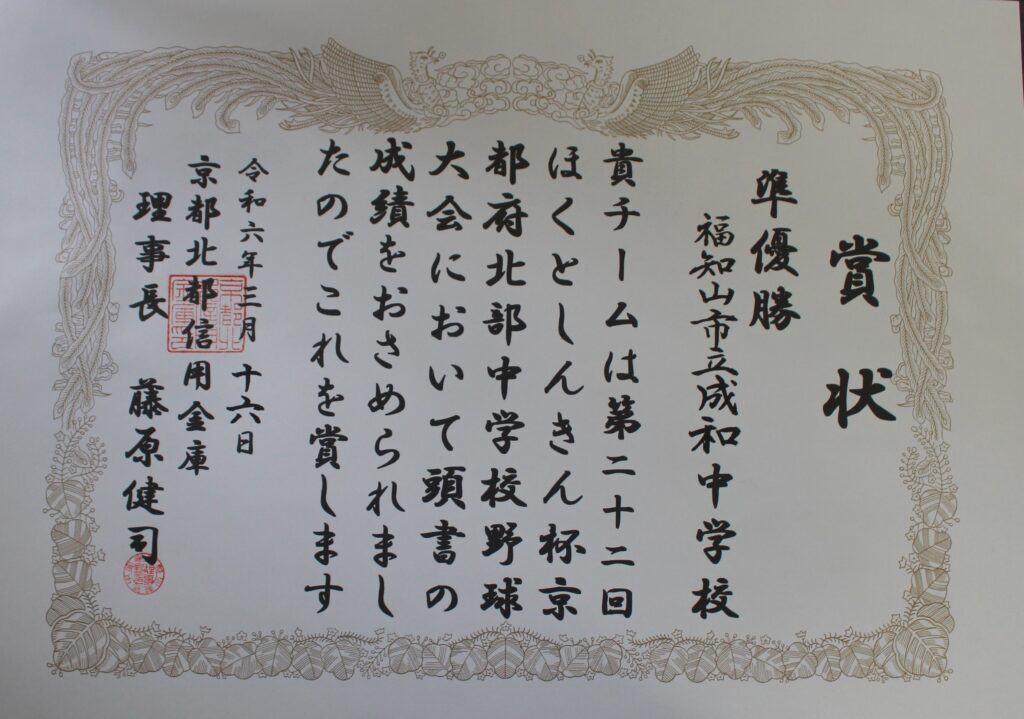 賞状
準優勝
福知山市立成和中学校
貴チームは第二十二回
ほくとしんきん杯京
都府北部中学校野球
大会において頭書の
成績をおさめられまし
たのでこれを賞します
令和六年三月十六日
京都北都信用金庫
理事長 藤原健司